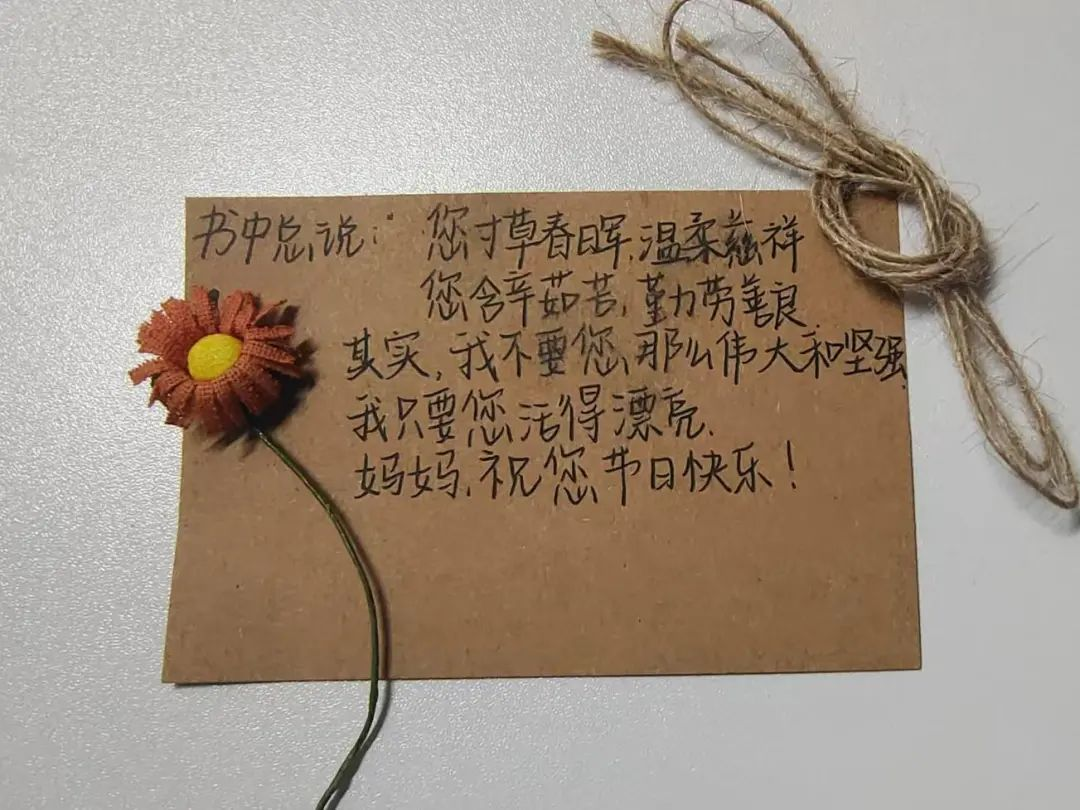 书中总说：您寸草春晖,温柔慈祥
您含辛茹苦,勤劳善良.
其实,我不要您那么伟大和坚强.
我只要您活得漂亮.
妈妈,祝您节日快乐！